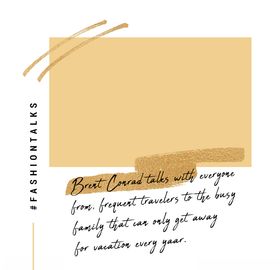 #FASHIONTALKS
Brent Conrad talks with everyone
from, frequent travelers to the busy
family that can only get away
for vacation every yaar.